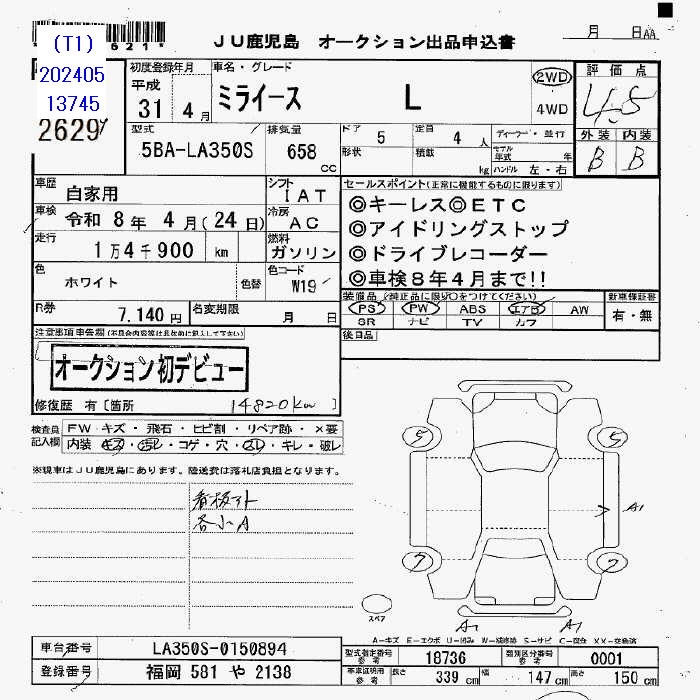 JU鹿児島 オークション出品申込書
月 日AA
(T1)
202405
13745
2629
初度登録年月
平成
31年 4月
車名・グレード
ミライース L
2WD
4WD
評価点
4.5
外装 内装
B B
型式
5BA-LA350S
排気量
658 cc
ドア 5
形状
定員 4 人
積載 kg
ディーラー・並行
モデル年式 年
ハンドル 左・右
車歴 自家用
シフト IAT
車検 令和 8年 4月(24日)
冷房 AC
走行 1万4千900 km
燃料 ガソリン
色 ホワイト
色替
色コード W19
R券 7,140円
名変期限 月 日
セールスポイント(正常に機能するものに限ります)
◎キーレス◎ETC
◎アイドリングストップ
◎ドライブレコーダー
◎車検8年4月まで!!
装備品(純正品に限り○をつけてください)
PS PW ABS エアB AW
SR ナビ TV カワ
新車保証書
有・無
後日品
注意事項申告欄(不具合内容等は具体的に記入して下さい)
オークション初デビュー
修復歴 有〔箇所 14820km 〕
検査員記入欄
FW キズ・飛石・ヒビ割・リペア跡・×要
内装 キズ・汚レ・コゲ・穴・スレ・キレ・破レ
※現車はJU鹿児島にあります。陸送費は落札店負担となります。
看板アト
各小A
5 5
7 7
A1
スペア
A1 A1
A-キズ E-エクボ U-凹み W-補修跡 S-サビ C-腐食 XX-交換済
車台番号 LA350S-0150894
登録番号 福岡 581 や 2138
型式指定番号 参考 18736
類別区分番号 参考 0001
車庫証明用 参考 長さ 339 cm 幅 147 cm 高さ 150 cm